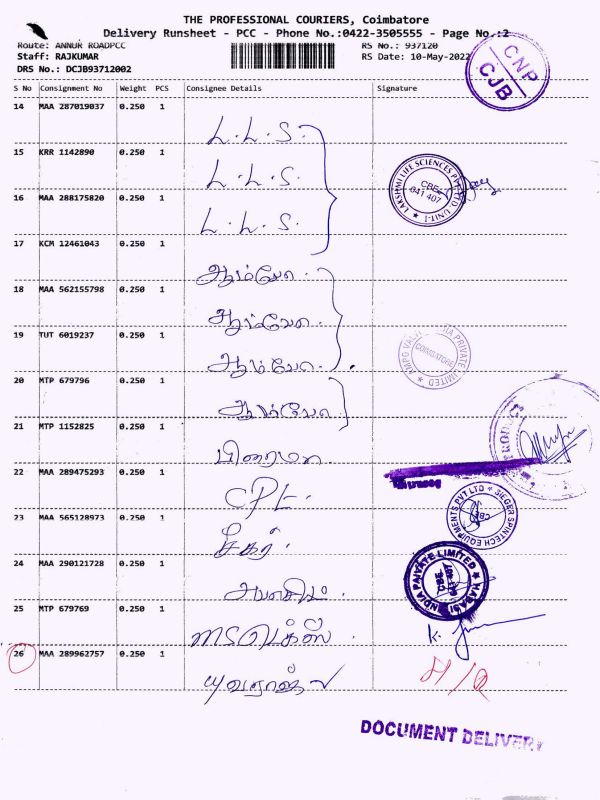 THE PROFESSIONAL COURIERS, Coimbatore
Delivery Runsheet - PCC - Phone No.:0422-3505555 - Page No.:2
Route: ANNUR ROADPCC RS No.: 937120
Staff: RAJKUMAR RS Date: 10-May-2022
DRS No.: DCJB93712002
CNP
CJB
S No Consignment No Weight PCS Consignee Details Signature
14 MAA 287019037 0.250 1 L.L.S.
15 KRR 1142890 0.250 1 L.L.S.
LAKSHMI LIFE SCIENCES PVT LTD, UNIT-I
CBE
641 407
16 MAA 288175820 0.250 1 L.L.S.
17 KCM 12461043 0.250 1 ஆம்வோ.
18 MAA 562155798 0.250 1 ஆம்வோ.
19 TUT 6019237 0.250 1 ஆம்வோ.
PRIVATE LIMITED
COIMBATORE
20 MTP 679796 0.250 1 ஆம்வோ.
21 MTP 1152825 0.250 1
22 MAA 289475293 0.250 1 CPL.
SIEGER SPINTECH EQUIPMENTS PVT LTD
CBE
23 MAA 565128973 0.250 1
24 MAA 290121728 0.250 1
HABASIT INDIA PRIVATE LIMITED
25 MTP 679769 0.250 1
26 MAA 289962757 0.250 1 யுவராஜ்
DOCUMENT DELIVERY